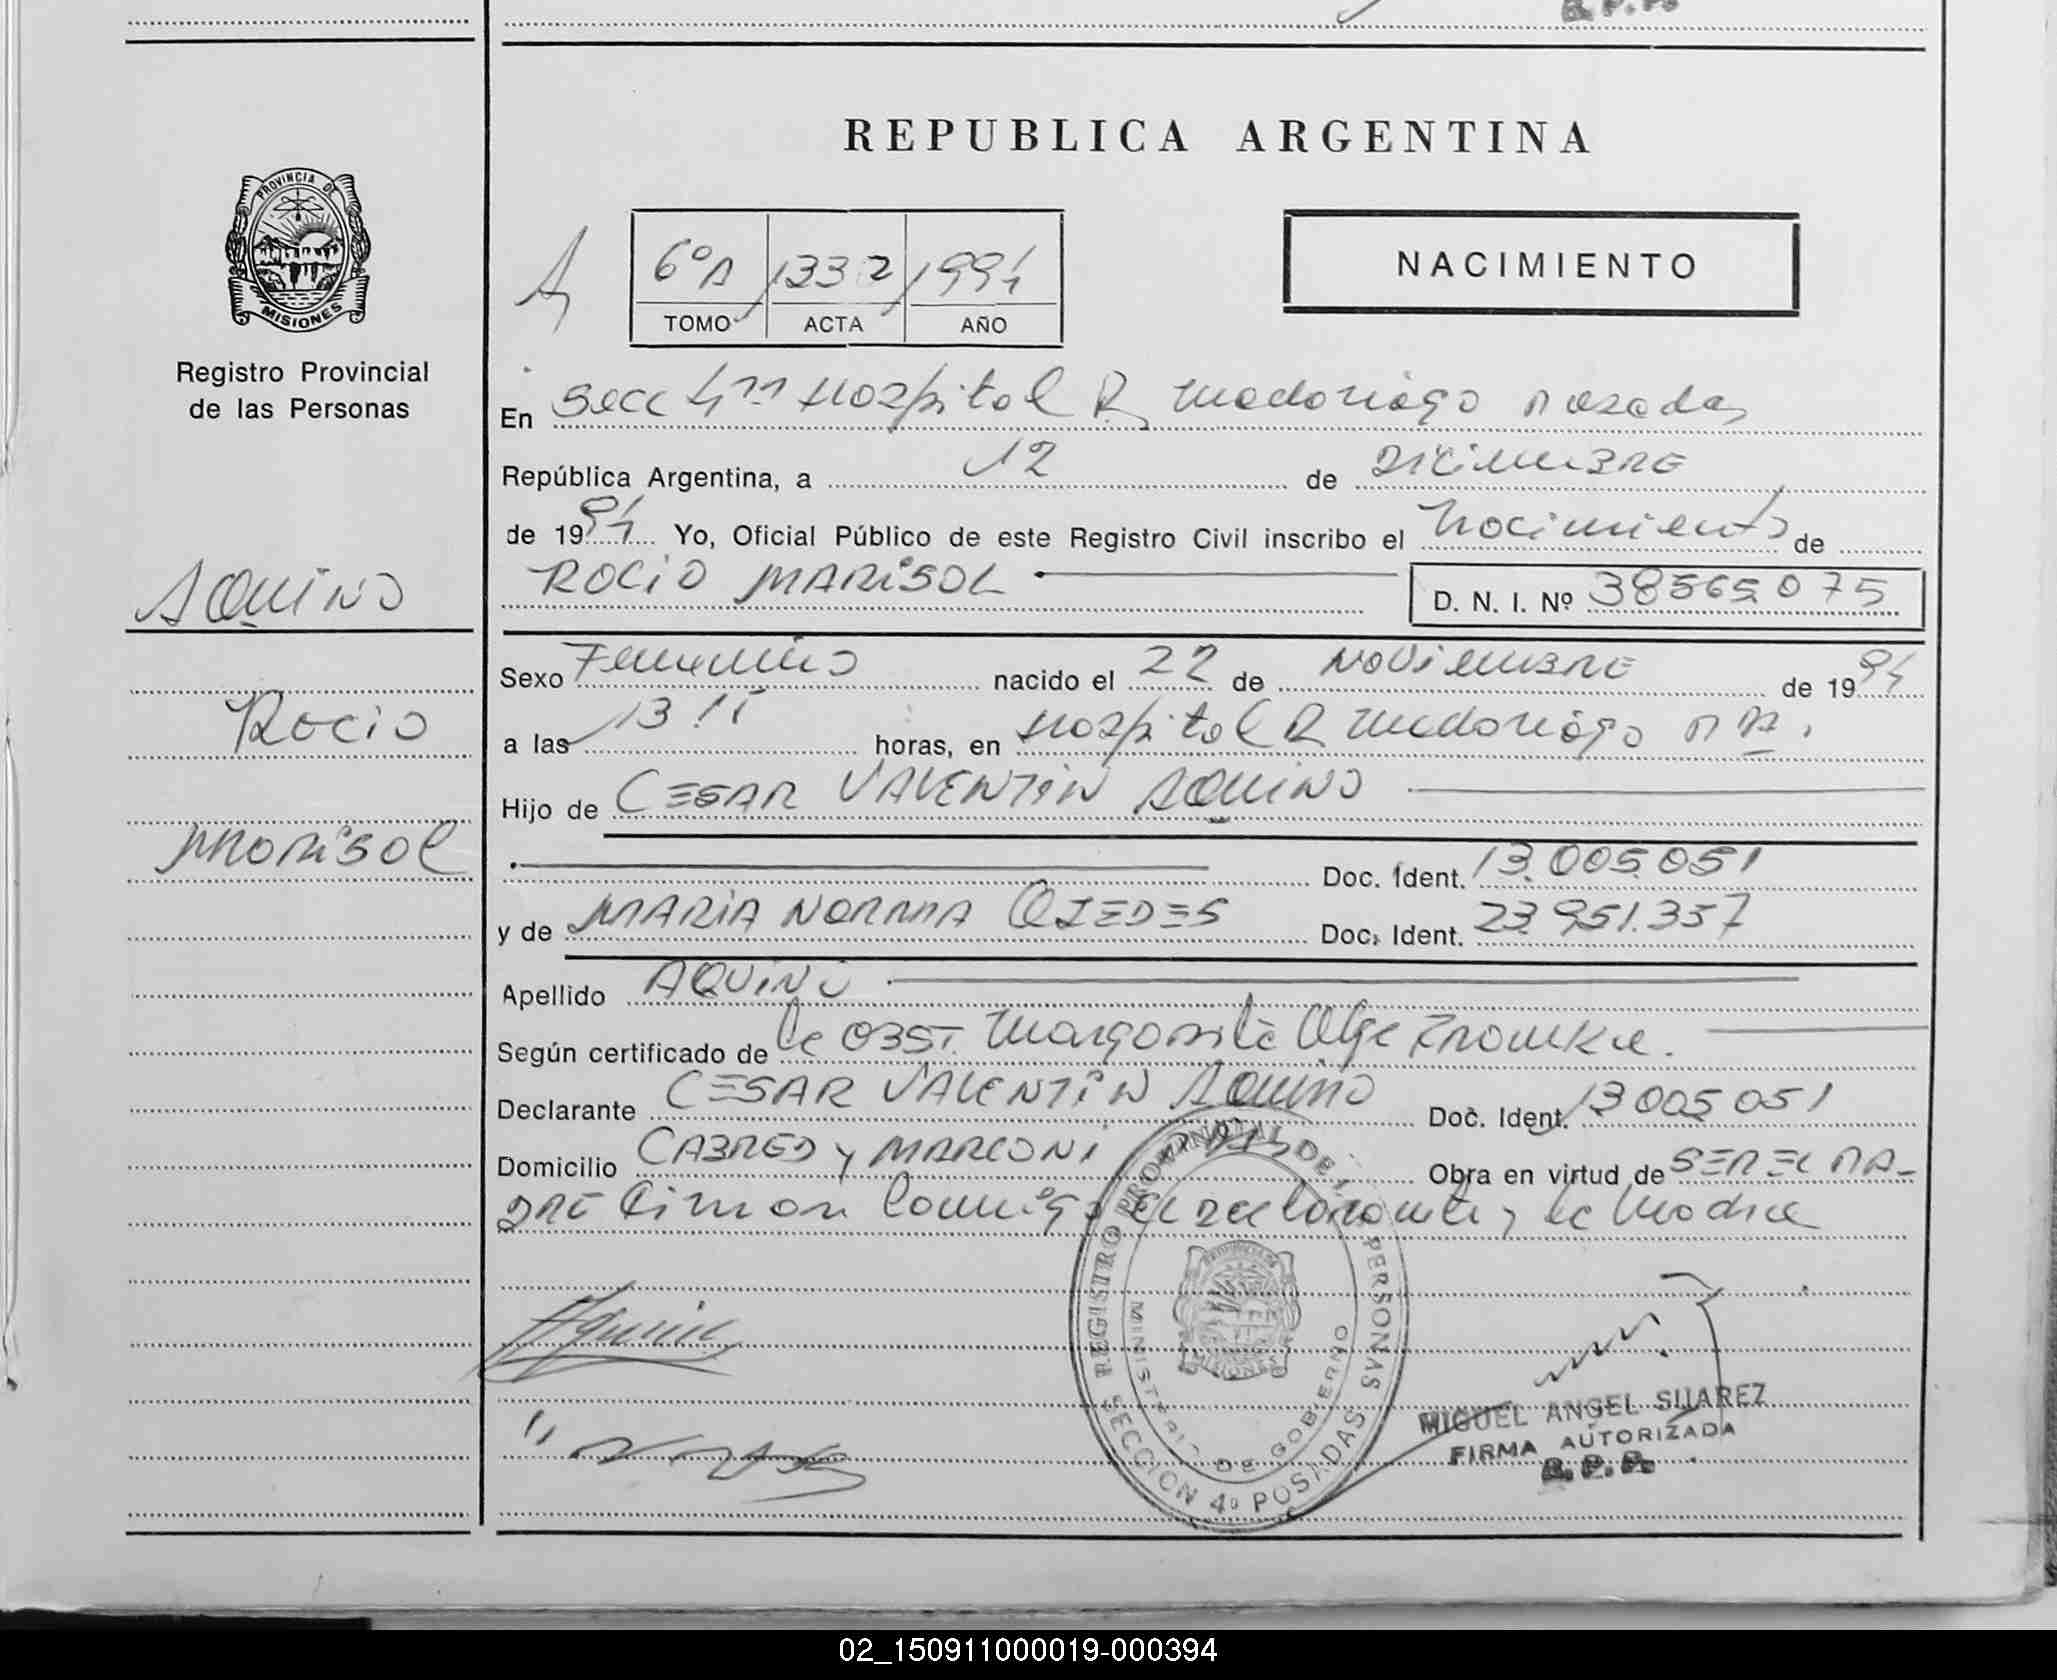 REPUBLICA ARGENTINA
PROVINCIA DE
MISIONES
Registro Provincial
de las Personas
6º A 1332 1994
TOMO ACTA AÑO
NACIMIENTO
En Secc 4ta Hospital R Madariaga Posadas
República Argentina, a 12 de DICIEMBRE
de 1994 Yo, Oficial Público de este Registro Civil inscribo el Nacimiento de
ROCIO MARISOL
D. N. I. Nº 38565075
AQUINO
Rocio
Marisol
Sexo Femenino nacido el 22 de NOVIEMBRE de 1994
a las 13 15 horas, en Hospital R Madariaga
Hijo de CESAR VALENTIN AQUINO
Doc. Ident. 13.005.051
y de MARIA NORMA Doc. Ident. 23.951.337
Apellido AQUINO
Según certificado de la OBST. Margarita Olga
Declarante CESAR VALENTIN AQUINO Doc. Ident. 13005051
Domicilio CABRED y MARCONI Obra en virtud de SER EL PA-
DRE Firman Conmigo El declarante y la Madre
REGISTRO PROVINCIAL DE LAS PERSONAS
MINISTERIO DE GOBIERNO
MISIONES
SECCION 4º POSADAS
Aquino
MIGUEL ANGEL SUAREZ
FIRMA AUTORIZADA
R.P.P.
02_150911000019-000394